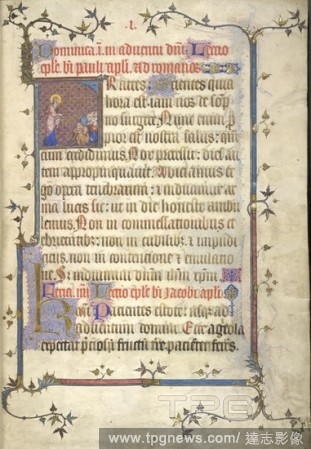 .i.
Dominica i. in adventu dni. Lectio
eple bi pauli apli. ad romanos
Fratres: Scientes quia
hora est iam nos de sop
no surgere. Nunc enim p
pior est nostra salus: qm
cum credidimus. Nox precessit: dies aut
tem appropinquavit. Abiciamus er
go opera tenebrarum: et induamur ar
ma lucis sic: ut in die honeste ambu
lemus. Non in commessationibus et
ebrietatibus: non in cubilibus et impudi
ciciis, non in contentione et emulatio
ne. Sz induimini dnm ihm xpm.
Feria. iiij. Lectio eple bi Jacobi apli
Kmi: Patientes estote: usqz ad
adventum domini. Ecce agricola
expectat preciosum fructum terre. patienter ferens.
TPG
www.tpgnews.com/ 達志影像